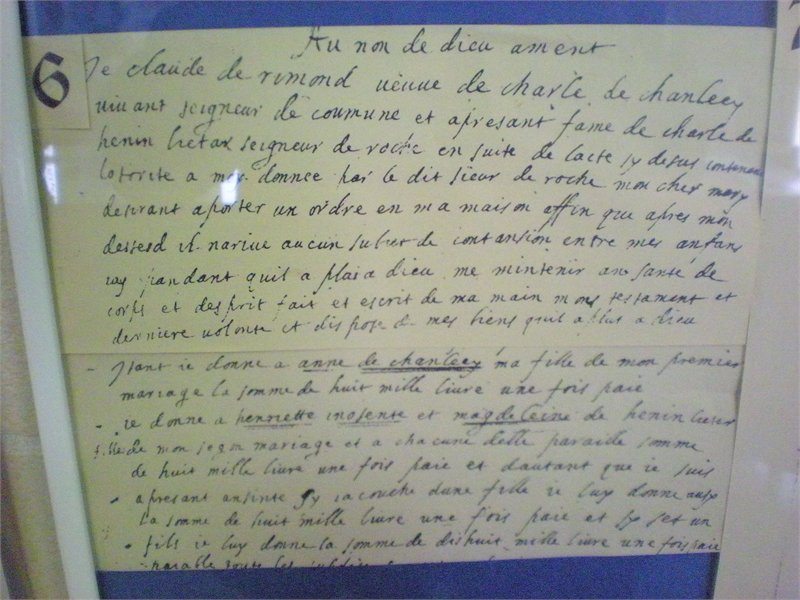 6
Au non de dieu ament
Je claude de rimond veuve de charle de chanlecy
vivant seigneur de coumune et apresant fame de charle de
henin lietar seigneur de roche en suite de lacte sy desus contenant
lotorite a moy donnee par le dit sieur de roche mon cher mary
desirant aporter un ordre en ma maison affin que apres mon
dessesd il narive aucun subiet de contansion entre mes anfans
iay pandant quil a plu a dieu me mintenir an santé de
corps et desprit fait et escrit de ma main mons testament et
derniere volonte et dispose de mes biens quil a plus a dieu
- Itant ie donne a anne de chanlecy ma fille de mon premier
mariage la somme de huit mille livre une fois paie
- ie donne a henriette inosente et magdeleine de henin lietar
fille de mon segon mariage et a chacune delle paraille somme
de huit mille livre une fois paie et dautant que ie suis
- apresant ansinte sy iacouche dune fille ie luy donne ausy
la somme de huit mille livre une fois paie et sy set un
- fils ie luy donne la somme de dishuit mille livre une fois paie
paiable toute les